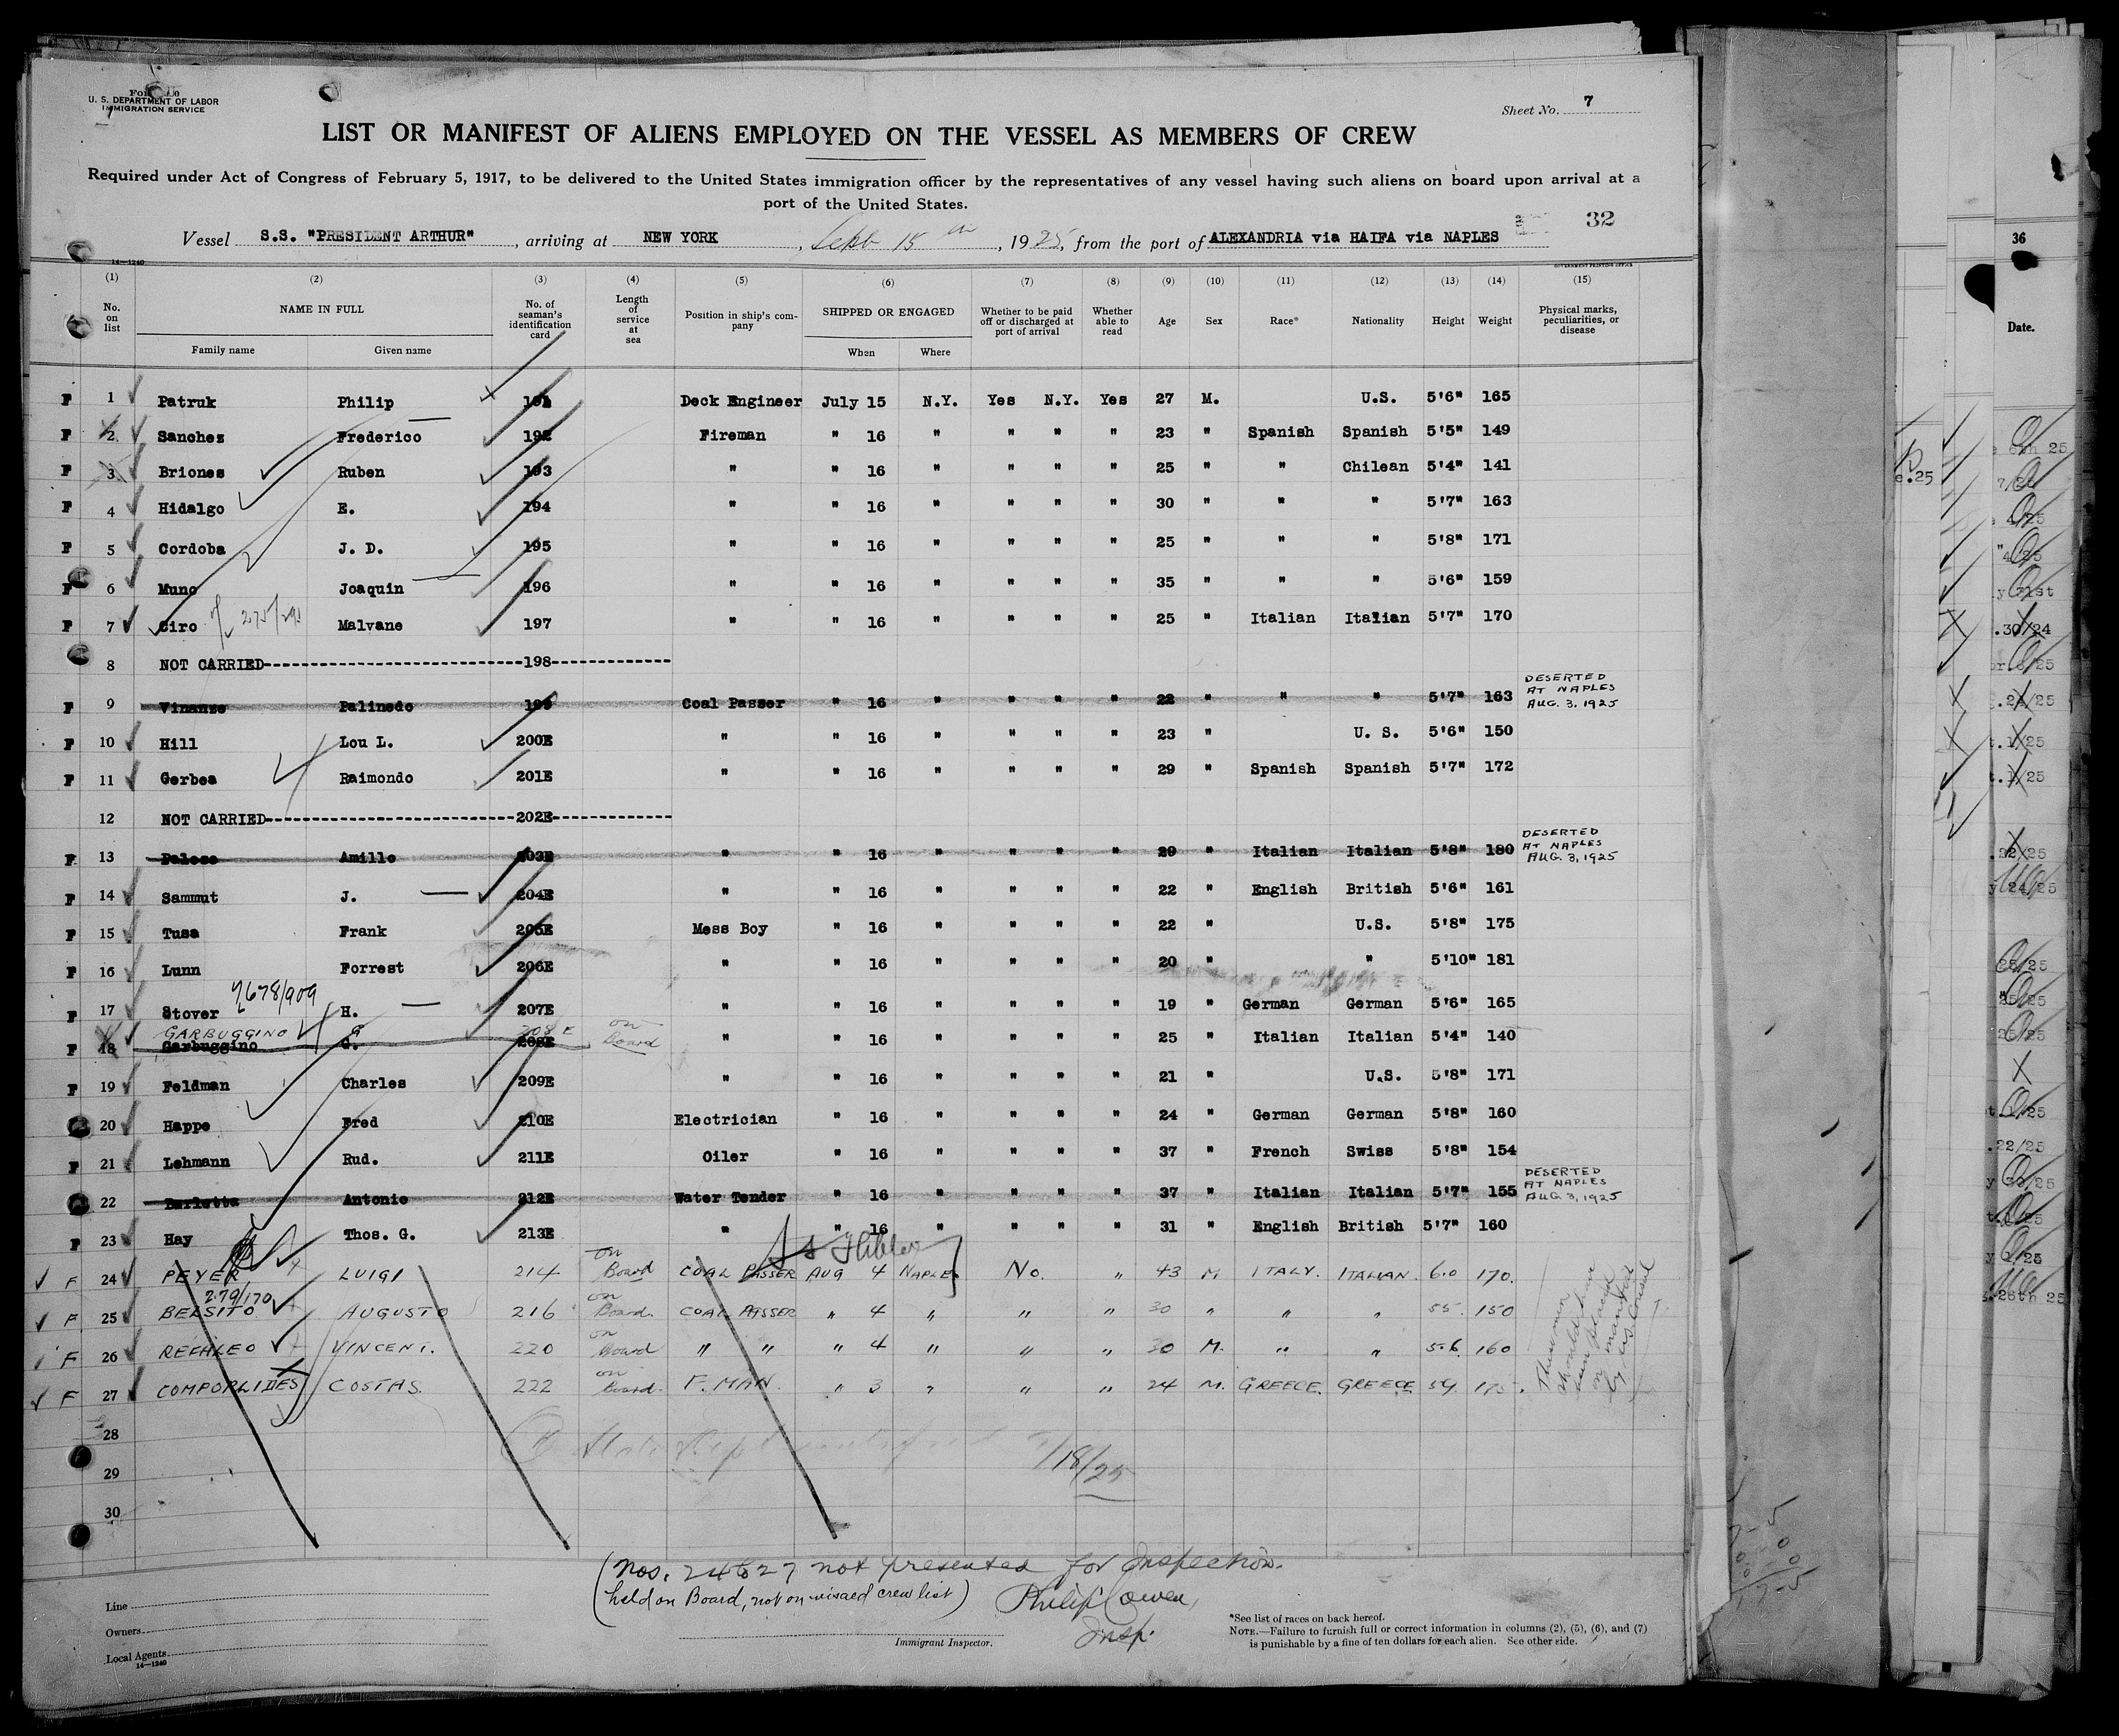 U. S. DEPARTMENT OF LABOR
IMMIGRATION SERVICE
Sheet No. 7
LIST OR MANIFEST OF ALIENS EMPLOYED ON THE VESSEL AS MEMBERS OF CREW
Required under Act of Congress of February 5, 1917, to be delivered to the United States immigration officer by the representatives of any vessel having such aliens on board upon arrival at a
port of the United States.
32
Vessel S.S. "PRESIDENT ARTHUR", arriving at NEW YORK, Sept 15 th, 1925, from the port of ALEXANDRIA via HAIFA via NAPLES
14—1240
GOVERNMENT PRINTING OFFICE
(1) (2) (3) (4) (5) (6) (7) (8) (9) (10) (11) (12) (13) (14) (15)
No. on list
NAME IN FULL
Family name
Given name
No. of seaman's identification card
Length of service at sea
Position in ship's company
SHIPPED OR ENGAGED
When
Where
Whether to be paid off or discharged at port of arrival
Whether able to read
Age
Sex
Race*
Nationality
Height
Weight
Physical marks, peculiarities, or disease
F 1 Patruk Philip 191 Deck Engineer July 15 N.Y. Yes N.Y. Yes 27 M. U.S. 5'6" 165
F 2 Sanchez Frederico 192 Fireman " 16 " " " " 23 " Spanish Spanish 5'5" 149
F 3 Briones Ruben 193 " " 16 " " " " 25 " " Chilean 5'4" 141
F 4 Hidalgo E. 194 " " 16 " " " " 30 " " " 5'7" 163
F 5 Cordoba J. D. 195 " " 16 " " " " 25 " " " 5'8" 171
F 6 Muno Joaquin 196 " " 16 " " " " 35 " " " 5'6" 159
F 7 Ciro Malvane 197 " " 16 " " " " 25 " Italian Italian 5'7" 170
8 NOT CARRIED 198
F 9 Vinanze Palinedo 199 Coal Passer " 16 " " " " 22 " " " 5'7" 163 DESERTED AT NAPLES AUG. 3, 1925
F 10 Hill Lou L. 200E " " 16 " " " " 23 " U. S. 5'6" 150
F 11 Gerbea Raimondo 201E " " 16 " " " " 29 " Spanish Spanish 5'7" 172
12 NOT CARRIED 202E
F 13 Palese Amillo 203E " " 16 " " " " 29 " Italian Italian 5'8" 180 DESERTED AT NAPLES AUG. 3, 1925
F 14 Sammut J. 204E " " 16 " " " " 22 " English British 5'6" 161
F 15 Tusa Frank 205E Mess Boy " 16 " " " " 22 " U.S. 5'8" 175
F 16 Lunn Forrest 206E " " 16 " " " " 20 " " 5'10" 181
F 17 Stover H. 207E " " 16 " " " " 19 " German German 5'6" 165
GARBUGGINO G 208 E on Board
F 18 Garbuggino G. 208E " " 16 " " " " 25 " Italian Italian 5'4" 140
F 19 Feldman Charles 209E " " 16 " " " " 21 " U.S. 5'8" 171
20 Happe Fred 210E Electrician " 16 " " " " 24 " German German 5'8" 160
F 21 Lehmann Rud. 211E Oiler " 16 " " " " 37 " French Swiss 5'8" 154
22 Barletta Antonio 212E Water Tender " 16 " " " " 37 " Italian Italian 5'7" 155 DESERTED AT NAPLES AUG. 3, 1925
F 23 Hay Thos. G. 213E " " 16 " " " " 31 " English British 5'7" 160
F 24 PEYER LUIGI 214 on Board COAL PASSER AUG 4 NAPLES No. " 43 M ITALY. ITALIAN. 6.0 170.
279/170
F 25 BELSITO AUGUSTO 216 on Board. COAL PASSER " 4 " " " 30 " " " 55. 150
F 26 REFALEO VINCENT. 220 on Board " " " 4 " " " 30 M. " " 5.6 160
F 27 COMPORLIDES COSTAS. 222 on Board. F. MAN. " 3 " " " 24 M. GREECE. GREECE 59 175.
These men should have been placed on manifest by U.S. Consul
28
29
30
18/25
(Nos. 24 to 27 not presented for Inspection.
held on Board, not on visaed crew list)
Philip Cowen,
Insp.
Immigrant Inspector.
Line
Owners
Local Agents
14—1240
*See list of races on back hereof.
NOTE.—Failure to furnish full or correct information in columns (2), (5), (6), and (7)
is punishable by a fine of ten dollars for each alien. See other side.
36
Date.